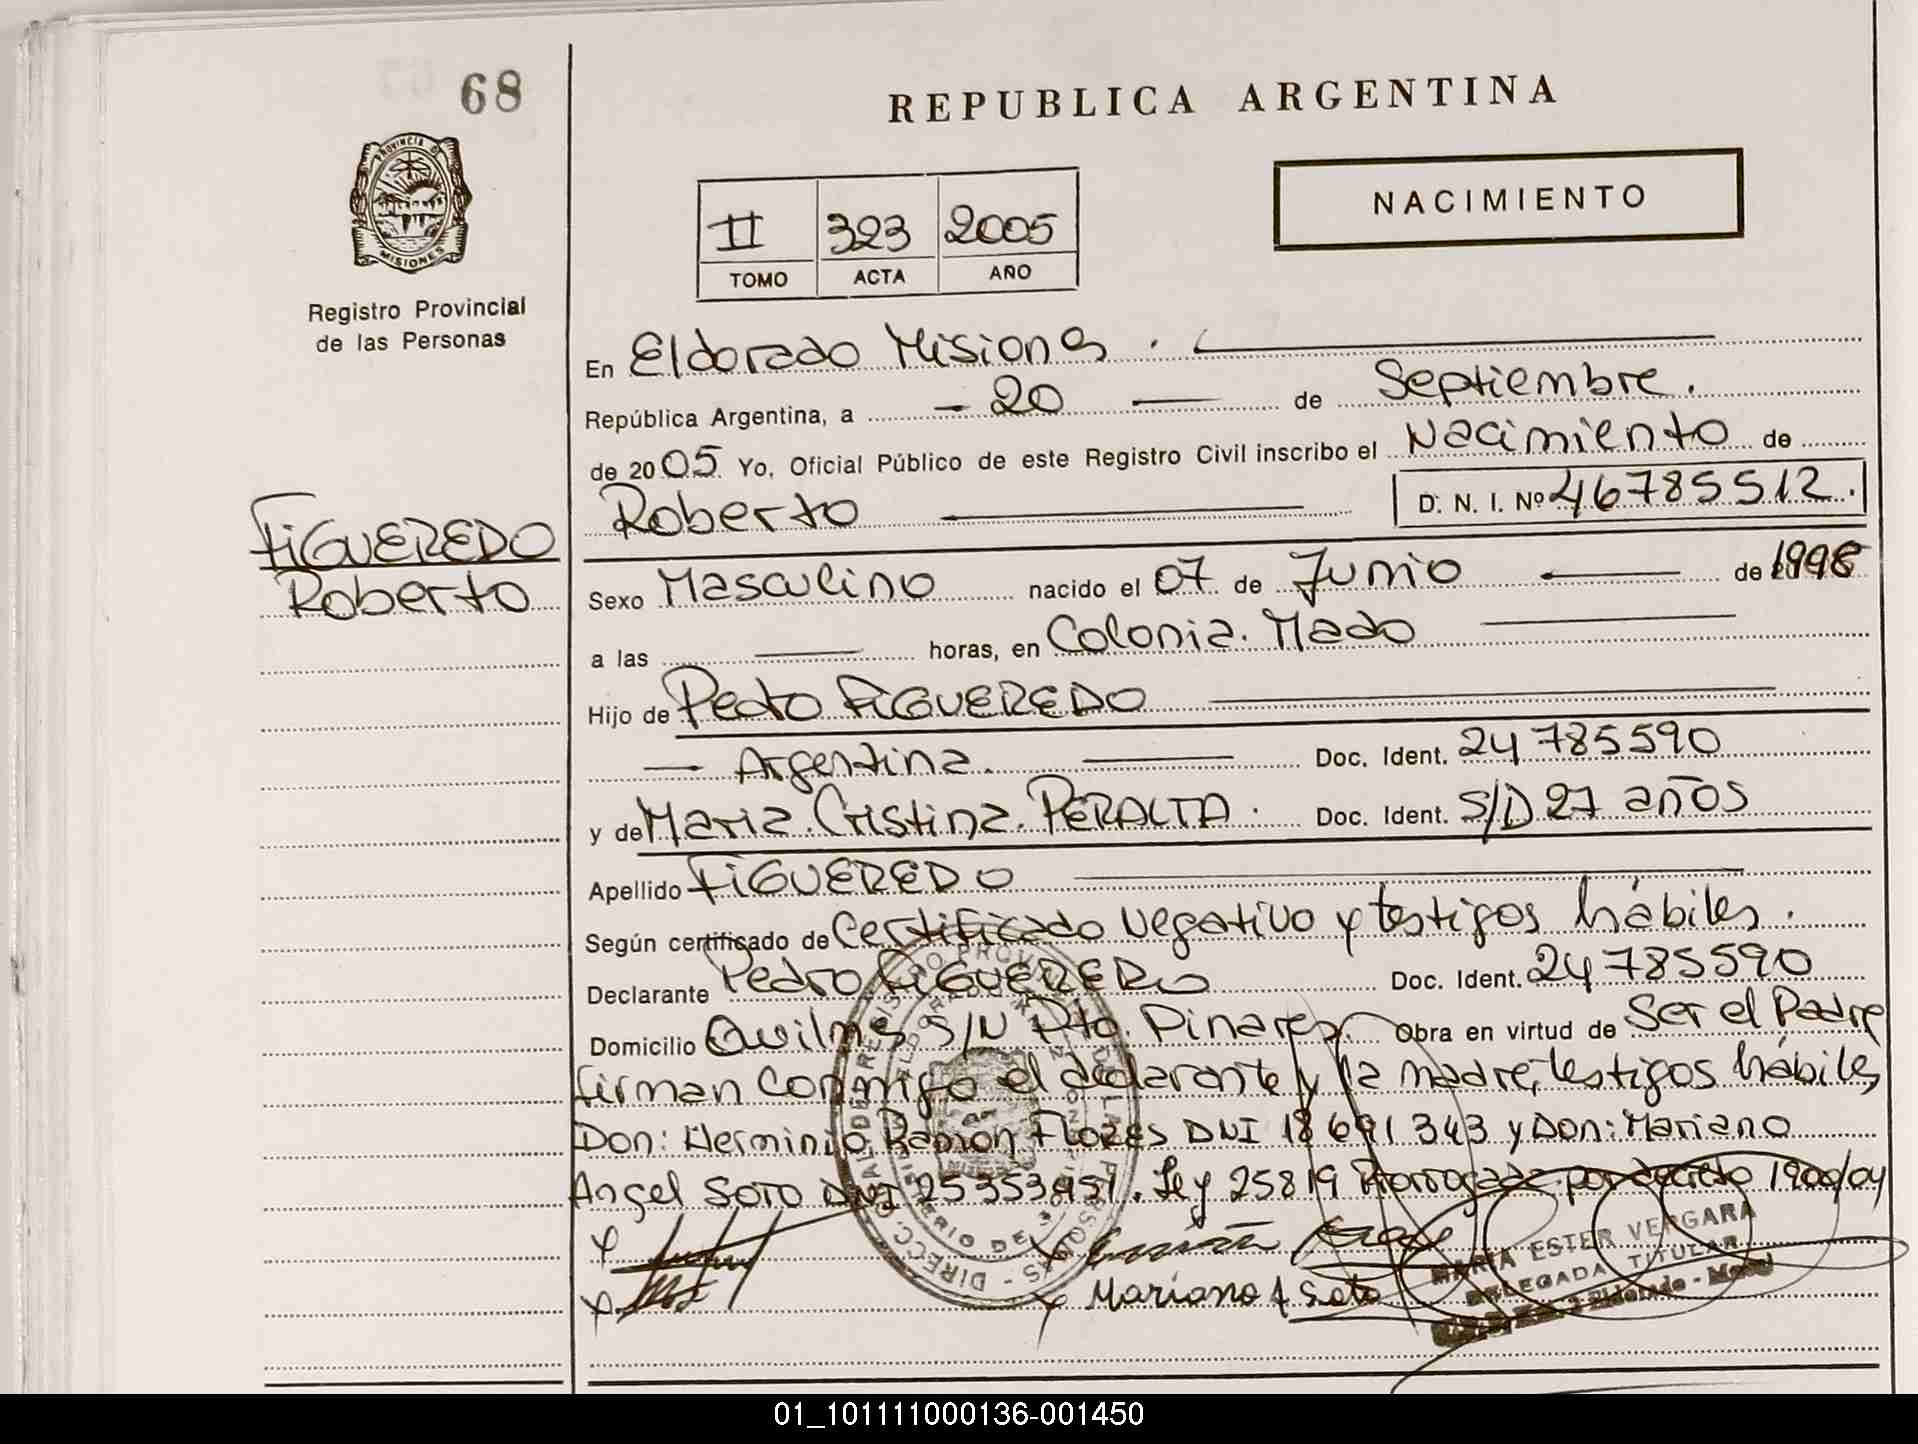 68
REPUBLICA ARGENTINA
NACIMIENTO
II 323 2005
TOMO ACTA AÑO
PROVINCIA DE
MISIONES
Registro Provincial
de las Personas
En Eldorado Misiones.
República Argentina, a - 20 — de Septiembre.
de 2005 Yo, Oficial Público de este Registro Civil inscribo el Nacimiento de
Roberto — D. N. I. Nº 46785512.
FIGUEREDO
Roberto
Sexo Masculino nacido el 07 de Junio — de 1998
a las — horas, en Colonia. Mado —
Hijo de Pedro FIGUEREDO —
— Argentina. — Doc. Ident. 24785590
y de Maria. Cristina. PERALTA. Doc. Ident. S/D 27 años
Apellido FIGUEREDO —
Según certificado de Certificado Negativo y testigos hábiles.
Declarante Pedro FIGUEREDO Doc. Ident. 24785590
Domicilio Quilmes S/N Pto. Pinares. Obra en virtud de Ser el Padre
firman conmigo el declarante y la madre, testigos hábiles
Don: Herminio Ramon FLORES DNI 18691343 y Don: Mariano
Angel SOTO DNI 25353951. Ley 25819 Prorrogada por decreto 1900/04
Mariano A Soto
MARIA ESTER VERGARA
DELEGADA TITULAR
Eldorado
01_101111000136-001450